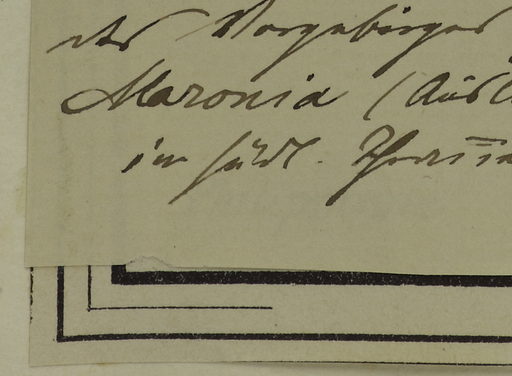 des Vorgebirges
Maronia (Aus
im südl.